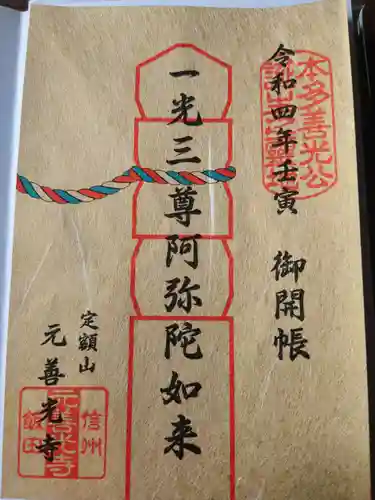 本多善光公
誕生
令和四年壬寅 御開帳
一光三尊阿弥陀如来
定額山
元善光寺
信州
元善光寺
飯田